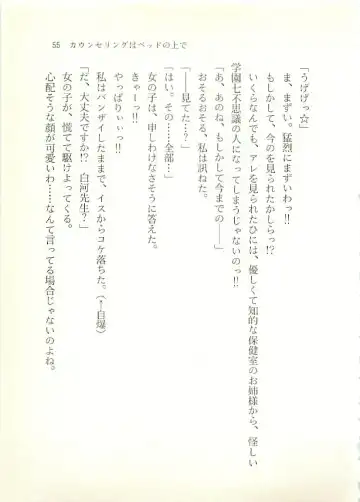 55　カウンセリングはベッドの上で
「うげげっ☆」
ま、まずい。猛烈にまずいわっ!!
もしかして、今のを見られたかしらっ!?
いくらなんでも、アレを見られたひには、優しくて知的な保健室のお姉様から、怪しい
学園七不思議の人になってしまうじゃないのっ!!
「あ、あのね、もしかして今までの――」
おそるおそる、私は訊ねた。
「――見てた…？」
「はい。その……全部…」
女の子は、申しわけなさそうに答えた。
きゃーっ!!
やっぱりぃぃっ!!
私はバンザイしたままで、イスからコケ落ちた。（←自爆）
「だ、大丈夫ですか!?　白河先生？」
女の子が、慌てて駆けよってくる。
心配そうな顔が可愛いわ……なんて言ってる場合じゃないのよね。